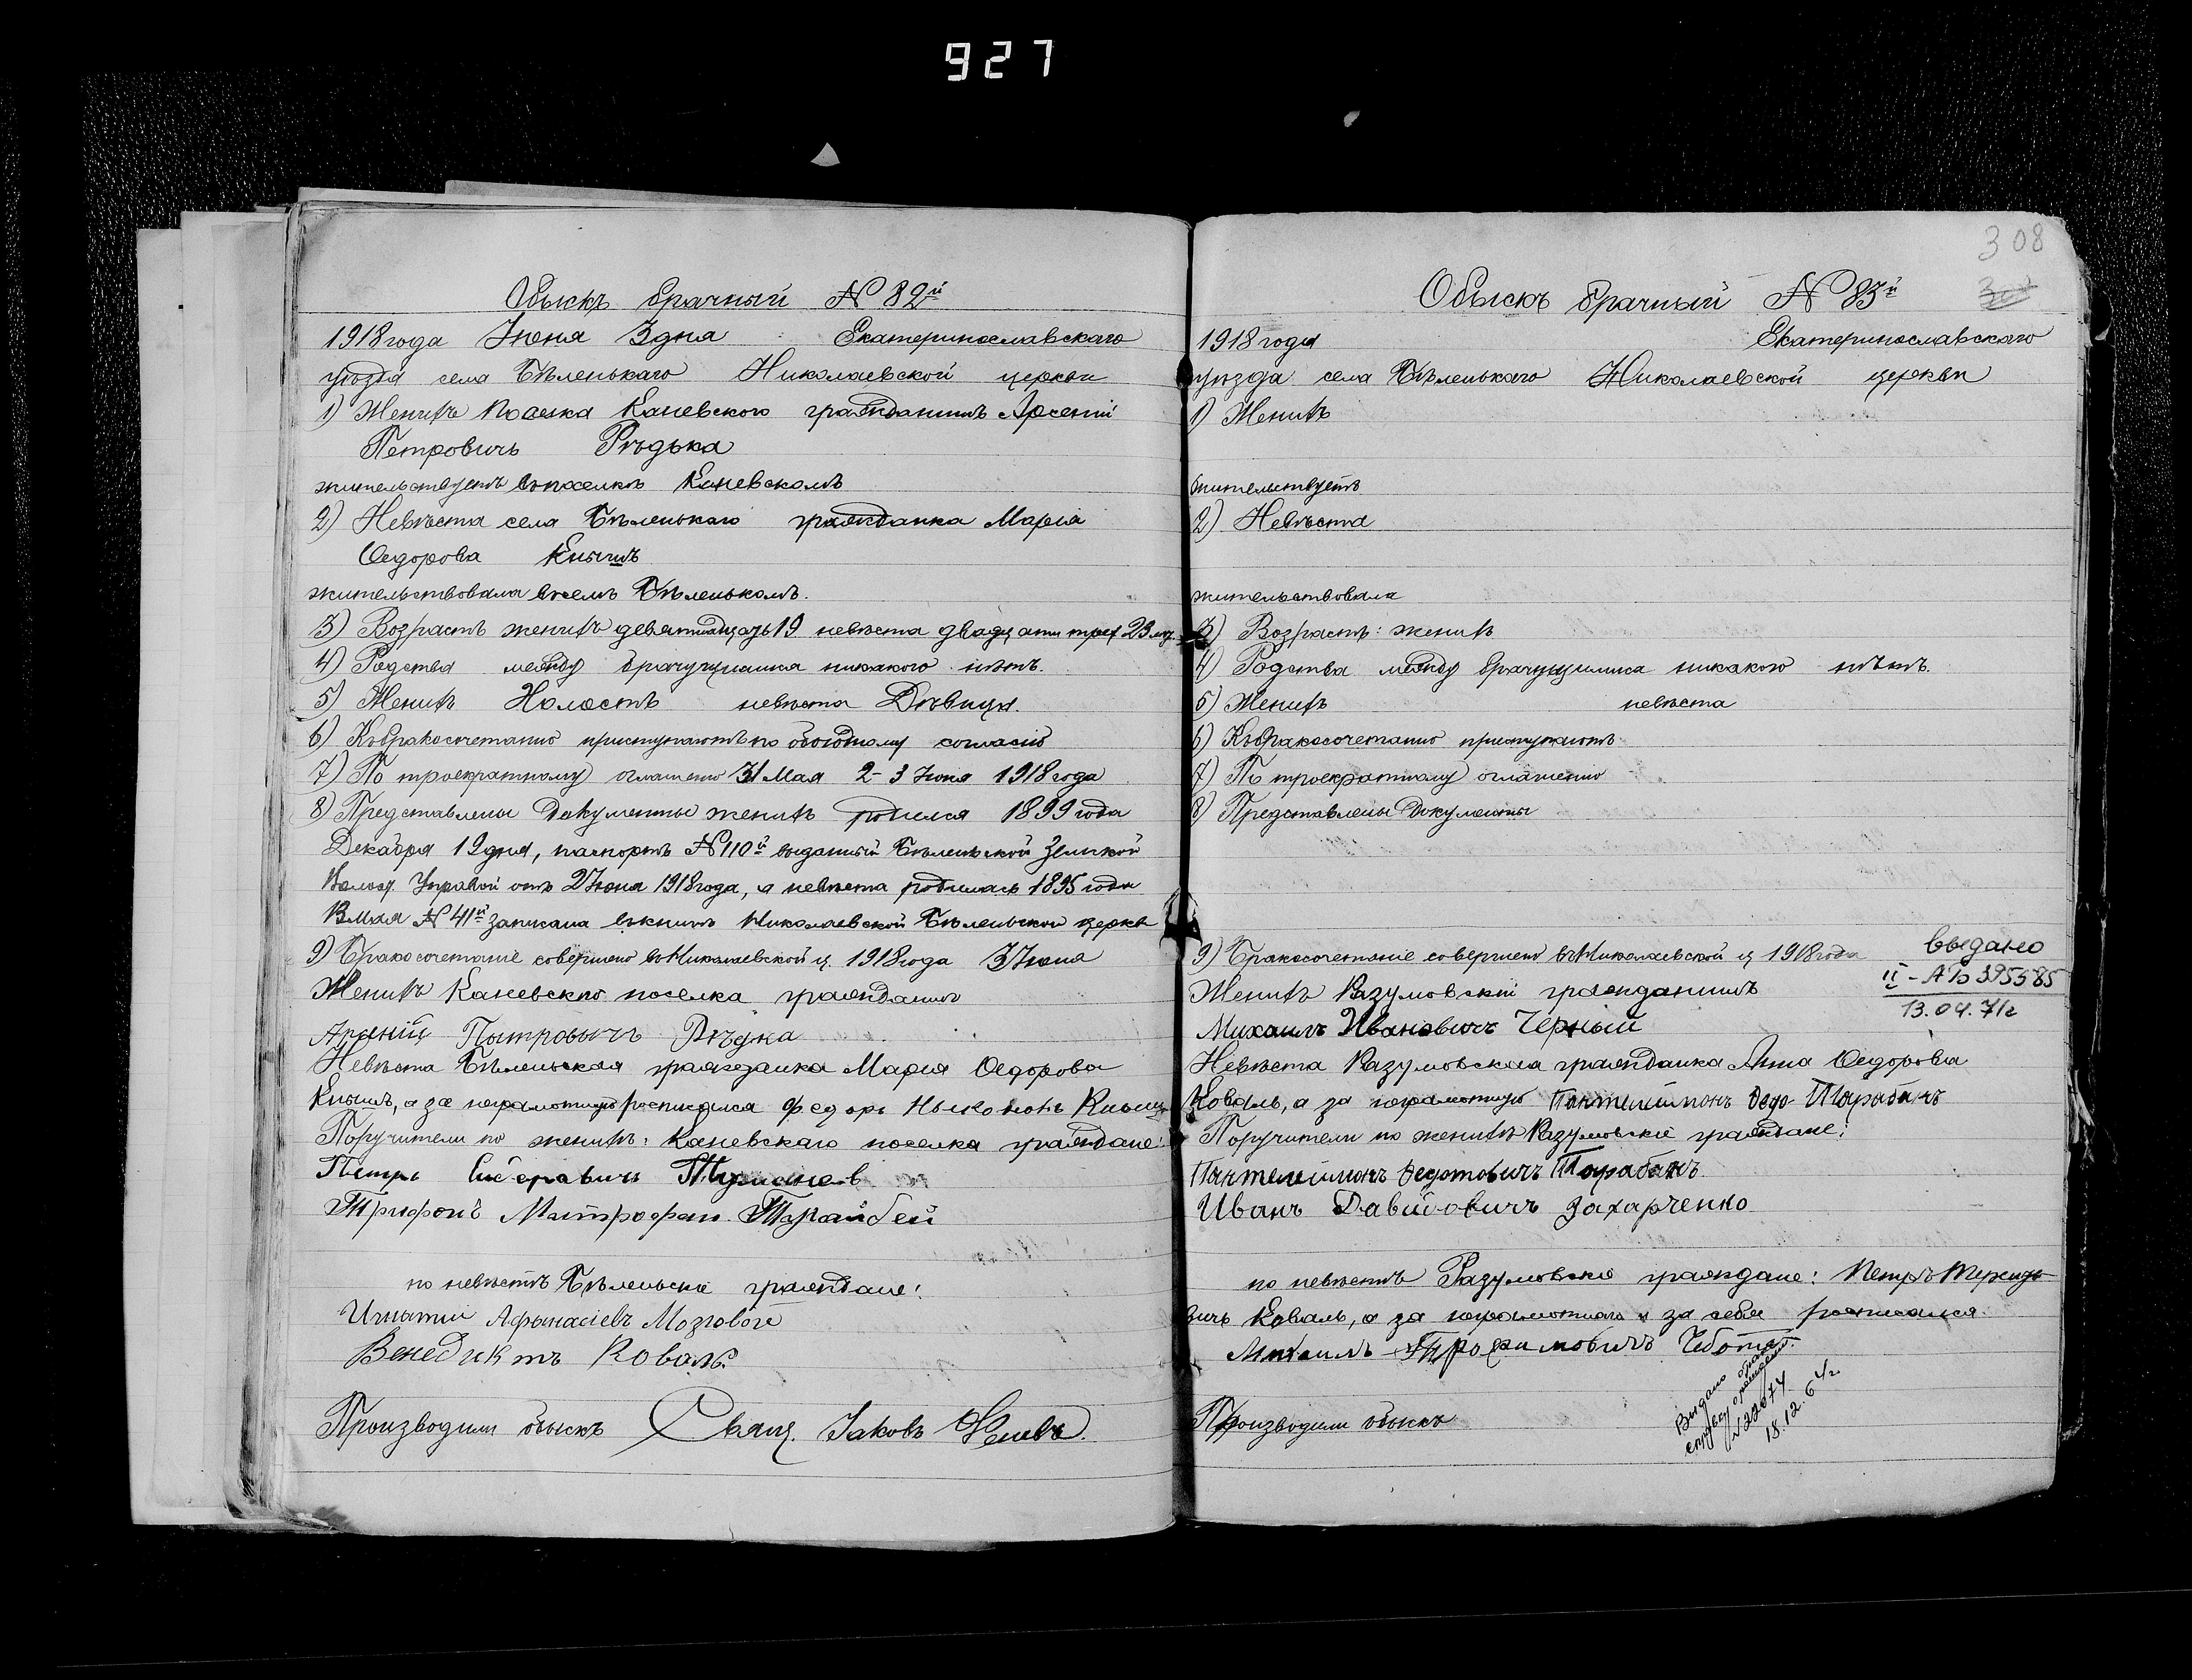 927
Обыскъ брачный N 82й
1918 года Июня 3 дня Екатеринославскаго
уѣзда села Бѣленькаго Николаевской церкви
1) Женихъ поселка Каневского гражданинъ Арсений
Петровичъ Рѣдька
жительствуетъ въ поселкѣ Каневскомъ
2) Невѣста села Бѣленькаго гражданка Марія
Ѳедорова Кнышъ
жительствовала въ селѣ Бѣленькомъ.
3) Возрастъ женихъ девятнадцать 19 невѣста двадцати трех 23 лѣт.
4) Родства между брачущимися никакого нѣтъ.
5) Женихъ Холостъ невѣста Дѣвица.
6) Къ бракосочетанію приступаютъ по обоюдному согласію
7) По троекратному оглашенію 31 Мая 2-3 Июня 1918 года
8) Представлены документы женихъ родился 1899 года
Декабря 19 дня, паспортъ N 110й выданный Бѣленьской Земской
Волост. Управой отъ 2 Июня 1918 года, а невѣста родилась 1895 года
Мая N 41й записана въ книгѣ Николаевской Бѣленьской церкви
9) Бракосочетаніе совершено въ Николаевской ц. 1918 года 3 Июня
Женихъ Каневскго поселка гражданинъ
Арсеній Пытровычъ Рѣдка
Невѣста Бѣленьская гражданка Марія Ѳедорова
Кнышъ, а за неграмотную росписался Федоръ Кныш
Поручители по женихѣ: Каневскаго поселка граждане:
Петръ
Трифонъ Митрофан.
по невѣстѣ Бѣленьскіе граждане:
Игнатій Афанасіевъ Мозговой
Венедиктъ Коваль
Производили обыскъ Свящ. Іаковъ
308
Обыскъ брачный N 83й
1918 года Екатеринославскаго
уѣзда села Бѣленькаго Николаевской церкви
1) Женихъ
жительствуетъ
2) Невѣста
жительствовала
3) Возрастъ: женихъ
4) Родства между брачущимися никакого нѣтъ.
5) Женихъ невѣста
6) Къ бракосочетанію приступаютъ
7) По троекратному оглашенію
8) Представлены документы
9) Бракосочетаніе совершено въ Николаевской ц 1918 года
выдано
II-АЮ 395385
13.04.71г
Женихъ Разумовскій гражданинъ
Михаилъ Ивановичъ Черный
Невѣста Разумовская гражданка Анна Ѳедорова
Коваль, а за неграмотную Пантелеймонъ Федо Тарабанъ
Поручители по женихѣ Разумовскіе граждане:
Пантелеймонъ Федотовичъ Тарабанъ
Иванъ Давидовичъ Захарченко
по невѣстѣ Разумовскіе граждане: Петръ Терентье
вичъ Коваль, а за неграмотнаго и за себя росписался
Михаилъ Трофимовичъ Чебота
Выдано
справку о рождении
N 22074
18.12.64г
Производили обыскъ